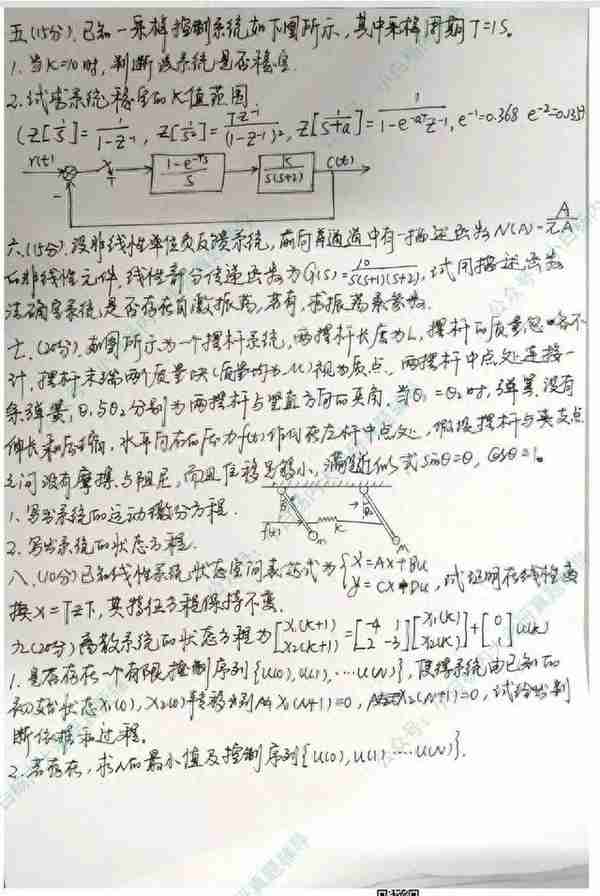 五(15分).已知一采样控制系统如下图所示,其中采样周期T=1S。
1. 当K=10时,判断该系统是否稳定.
2. 试求系统稳定的K值范围
(Z[1/S]=1/(1-Z⁻¹), Z[1/S²]=TZ⁻¹/(1-Z⁻¹)², Z[1/(S+a)]=1/(1-e^(-aT)Z⁻¹), e⁻¹=0.368 e⁻²=0.135)
r(t) - T (1-e^(-TS))/S K/(S(S+2)) C(t)
六.(15分).设非线性单位负反馈系统,前向普通道中有一描述函数N(A)=A/πA
的非线性元件,线性部分传递函数为G(s)=10/(S(S+1)(S+2)),试用描述函数
法确定系统是否存在自激振荡,若有,求振荡参数.
七.(20分).如图所示为一个摆杆系统,两摆杆长度为L,摆杆的质量忽略不
计,摆杆末端两个质量块(质量均为M)视为质点,两摆杆中点处连接一
条弹簧,θ₁与θ₂分别为两摆杆与竖直方向的夹角.当θ₁=θ₂时,弹簧没有
伸长和压缩,水平向右的压力f(t)作用在左杆中点处,假设摆杆与支点
之间没有摩擦与阻尼,而且位移足够小,满足近似式sinθ=θ,cosθ=1。
1. 写出系统的运动微分方程.
2. 写出系统的状态方程.
f(t) K m m
八.(10分)已知线性系统状态空间表达式为{Ẋ=AX+BU y=CX+DU,试证明在线性变
换X=TX̄下,其特征方程保持不变.
九(20分)离散系统的状态方程为[X₁(K+1) X₂(K+1)]=[-4 1 2 -3][X₁(K) X₂(K)]+[0 1]u(k)
1. 是否存在一个有限控制序列{u(0),u(1),…u(N)},使得系统由已知的
初始状态X₁(0),X₂(0)转移到X₁(N+1)=0,X₂(N+1)=0,试给出判
断依据和过程.
2. 若存在,求N的最小值及控制序列{u(0),u(1)…u(N)}.